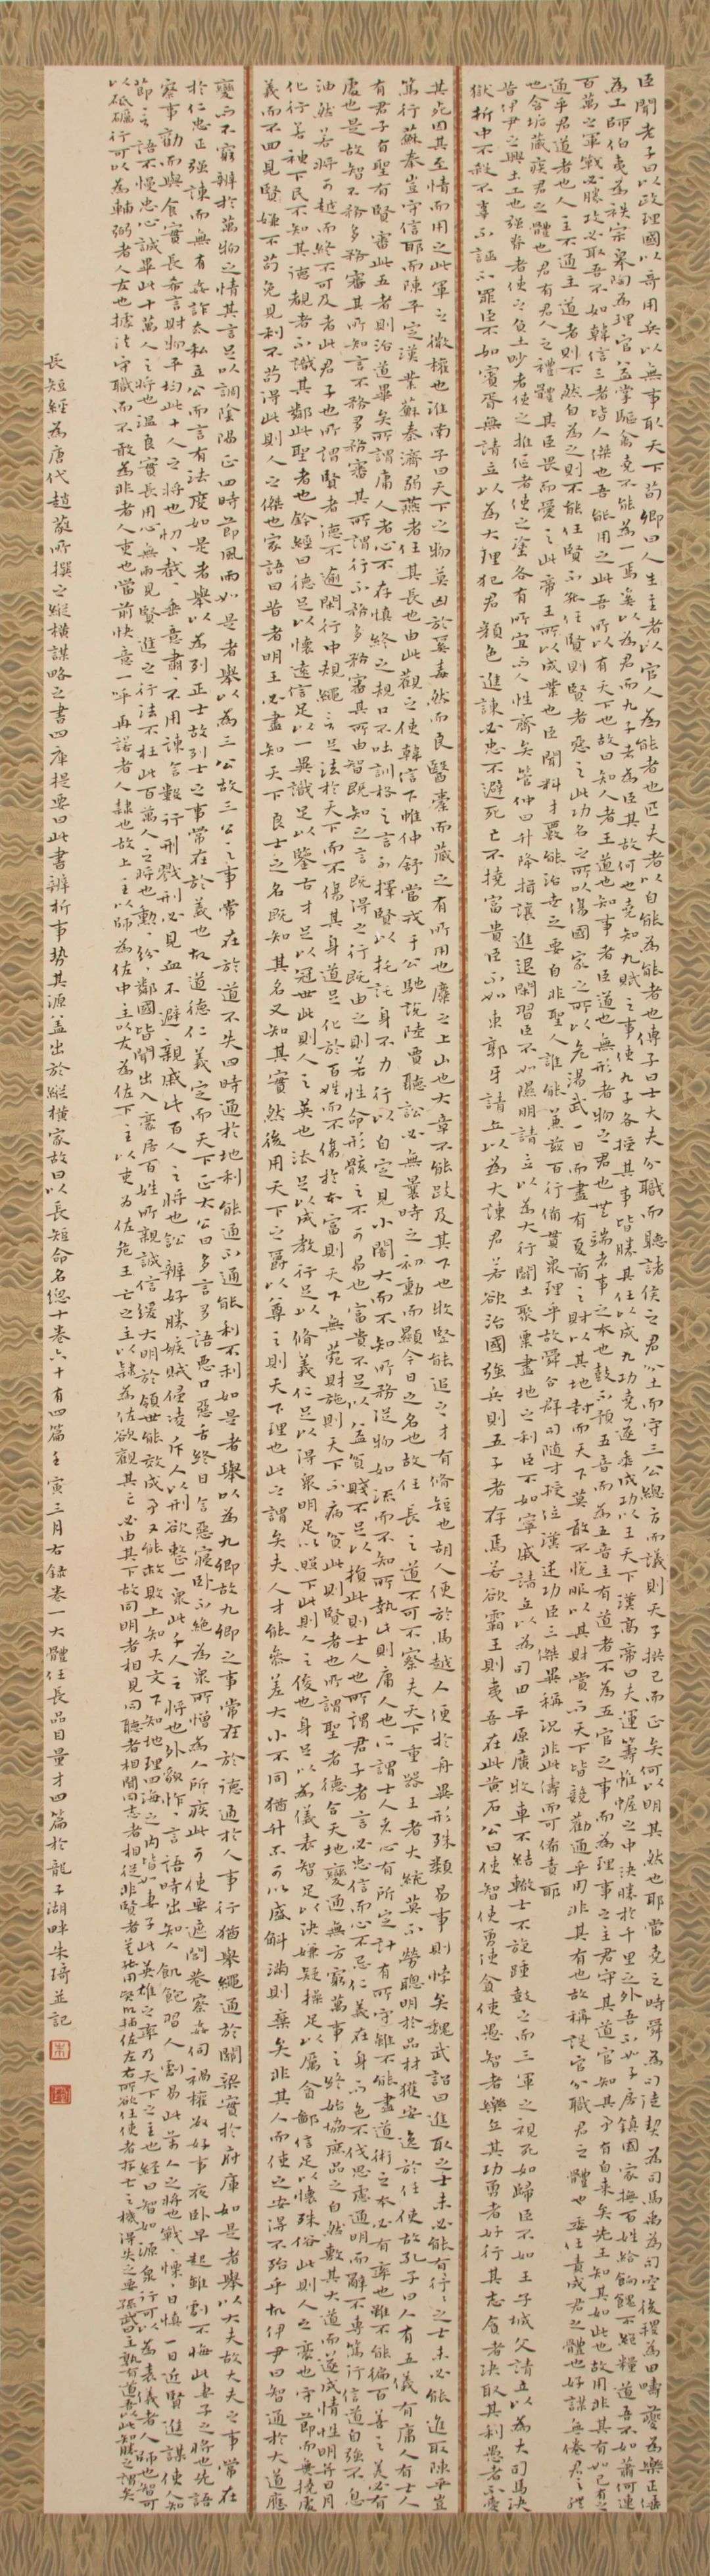 臣聞老子曰以政理國以奇用兵以無事取天下荀卿曰人主者以官人為能者也匹夫者以自能為能者也傅子曰士大夫分職而聽諸侯之君分土而守三公總方而議則天子拱己而正矣何以明其然也耶當堯之時舜為司徒契為司馬禹為司空後稷為田疇夔為樂正倕
為工師伯夷為秩宗皋陶為理官益掌驅禽堯不能為一焉奚以為君而九子者為臣其故何也堯知九賦之事使九子各授其事皆勝其任以成九功堯遂乘成功以王天下漢高帝曰夫運籌帷幄之中決勝於千里之外吾不如子房鎮國家撫百姓給餉餽不絕糧道吾不如蕭何連
百萬之軍戰必勝攻必取吾不如韓信三者皆人傑也吾能用之此吾所以有天下也故曰知人者王道也知事者臣道也無形者物之君也無端者事之本也鼓不預五音而為五音主有道者不為五官之事而為理事之主君守其道官知其事有自來矣先王知其如此也故用非其有如己有之
通乎君道者也人主不通主道者則不然自為之則不能任賢不能任賢則賢者惡之此功名之所以傷國家之所以危湯武一日而盡有夏商之財以其地封而天下莫敢不悅服以其財賞而天下皆競勸通乎用非其有也故稱設官分職君之體也委任責成君之體也好謀無倦君之體
也含垢藏疾君之體也君有君人之體其臣畏而愛之此帝王所以成業也臣聞料才覈能治世之要自非聖人誰能兼茲百行備貫眾理乎故舜合群司隨才授位漢述功臣三傑異稱況非此儔而可備責耶
昔伊尹之興土工也強脊者使之負土眇者使之推傴者使之塗各有所宜而人性齊矣管仲曰升降揖讓進退閑習臣不如隰朋請立以為大行闢土聚粟盡地之利臣不如甯戚請立以為司田平原廣牧車不結轍士不旋踵鼓之而三軍之視死如歸臣不如王子城父請立以為大司馬決
獄折中不殺不辜不誣不罪臣不如賓胥無請立以為大理犯君顏色進諫必忠不避死亡不撓富貴臣不如東郭牙請立以為大諫君若欲治國強兵則五子者存焉若欲霸王則夷吾在此黃石公曰使智使勇使貪使愚智者樂立其功勇者好行其志貪者決取其利愚者不愛
其死因其至情而用之此軍之微權也淮南子曰天下之物莫凶於奚毒然而良醫橐而藏之有所用也麋之上山也大章不能跂及其下也牧豎能追之才有脩短也胡人便於馬越人便於舟異形殊類易事則悖矣魏武詔曰進取之士未必能有行有行之士未必能進取陳平豈
篤行蘇秦豈守信耶而陳平定漢業蘇秦濟弱燕者任其長也由此觀之使韓信下帷仲舒當戎于公馳說陸賈聽訟必無曩時之勳而顯今日之名也故任長之道不可不察夫天下重器王者大統莫不勞聰明於品材獲安逸於任使故孔子曰人有五儀有庸人有士人
有君子有聖有賢審此五者則治道畢矣所謂庸人者心不存慎終之規口不吐訓格之言不擇賢以托身不力行以自定見小闇大而不知所務從物如流而不知所執此則庸人也所謂士人者心有所定計有所守雖不能盡道術之本必有率也雖不能徧百善之美必有
處也是故智不務多務審其所知言不務多務審其所謂行不務多務審其所由智既知之言既得之行既由之則若性命形骸之不可易也富貴不足以益貧賤不足以損此則士人也所謂君子者言必忠信而心不忌仁義在身而色不伐思慮通明而辭不專篤行信道自強不息
油然若將可越而終不可及者此君子也所謂賢者德不逾閑行中規繩言足法於天下而不傷其身道足化於百姓而不傷於本富則天下無菀財施則天下不病貧此則賢者也所謂聖者德合天地變通無方窮萬事之終始協庶品之自然敷其大道而遂成情性明並日月
化行若神下民不知其德覩者不識其鄰此聖者也鈐經曰德足以懷遠信足以一異識足以鑒古才足以冠世此則人之英也法足以成教行足以脩義仁足以得眾明足以照下此則人之俊也身足以為儀表智足以決嫌疑操足以厲貪鄙信足以懷殊俗此則人之豪也守節而無撓處
義而不回見嫌不苟免見利不苟得此則人之傑也家語曰昔者明王必盡知天下良士之名既知其名又知其實然後用天下之爵以尊之則天下理也此之謂矣夫人才能參差大小不同猶升不可以盛斛滿則棄矣非其人而使之安得不殆乎故伊尹曰智通於大道應
變而不窮辨於萬物之情其言足以調陰陽正四時節風雨如是者舉以為三公故三公之事常在於道不失四時通於地利能通不通能利不利如是者舉以為九卿故九卿之事常在於德通於人事行猶舉繩通於關梁實於府庫如是者舉以為大夫故大夫之事常在
於仁忠正強諫而無有姦詐去私立公而言有法度如是者舉以為列士故列士之事常在於義也故道德仁義定而天下正太公曰多言多語惡口惡舌終日言惡寢臥不絕為眾所憎為人所疾此可使要遮閭巷察姦伺禍權數好事夜臥早起雖劇不悔此妻子之將也先語
察事勸而與食實長希言財物平均此十人之將也忉忉截截垂意肅肅不用諫言數行刑戮刑必見血不避親戚此百人之將也訟辨好勝嫉賊侵凌斥人以刑欲整一眾此千人之將也外貌怍怍言語時出知人飢飽習人劇易此萬人之將也戰戰慄慄日慎一日近賢進謀使人知
節言語不慢忠心誠畢此十萬人之將也溫良實長用心無兩見賢進之行法不枉此百萬人之將也勳勳紛紛鄰國皆聞出入豪居百姓所親誠信緩大明於領世能效成事又能救敗上知天文下知地理四海之內皆如妻子此英雄之率乃天下之主也經曰智如源泉行可以為表儀者人師也智可
以砥礪行可以為輔弼者人友也據法守職而不敢為非者人吏也當前快意一呼再諾者人隸也故上主以師為佐中主以友為佐下主以吏為佐危亡之主以隸為佐欲觀其亡必由其下故同明者相見同聽者相聞同志者相從非賢者莫能用賢故輔佐左右所欲任使者存亡之機得失之要孫武曰主孰有道吾以此知勝之謂矣
長短經為唐代趙蕤所撰之縱橫謀略之書四庫提要曰此書辨析事勢其源蓋出於縱橫家故曰以長短命名總十卷六十有四篇壬寅三月右錄卷一大體任長品目量才四篇於龍子湖畔朱琦並記